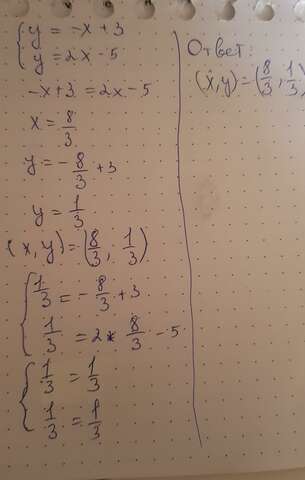 { y = -x + 3
{ y = 2x - 5
-x + 3 = 2x - 5
x = 8/3
y = - 8/3 + 3
y = 1/3
(x, y) = (8/3, 1/3)
{ 1/3 = - 8/3 + 3
{ 1/3 = 2 * 8/3 - 5
{ 1/3 = 1/3
{ 1/3 = 1/3
Ответ:
(x, y) = (8/3, 1/3)